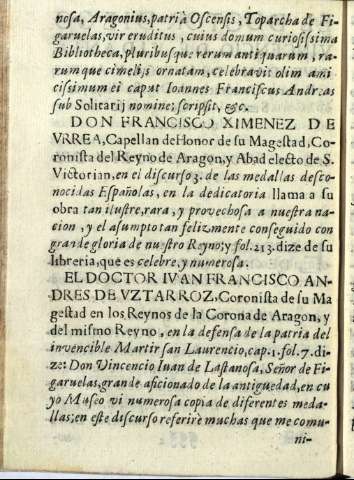 nosa, Aragonius, patria Oscensis, Toparcha de Fi-
garuelas, vir eruditus, cuius domum curiosissima
Bibliotheca, pluribusque rerum antiquarum, ra-
rumque cimelijs ornatam, celebravit olim ami
cissimum ei caput Ioannes Franciscus Andreas
sub Solitarij nomine; scripsit, &c.
DON FRANCISCO XIMENEZ DE
VRREA, Capellan de Honor de su Magestad, Co-
ronista del Reyno de Aragon, y Abad electo de S.
Victorian, en el discurso 3. de las medallas desco-
nocidas Españolas, en la dedicatoria llama a su
obra tan ilustre, rara, y provechosa a nuestra na-
cion, y el asumpto tan felizmente conseguido con
grande gloria de nuestro Reyno; y fol. 213. dize de su
libreria, que es celebre, y numerosa.
EL DOCTOR IVAN FRANCISCO AN-
DRES DE VZTARROZ, Coronista de su Ma
gestad en los Reynos de la Corona de Aragon, y
del mismo Reyno, en la defensa de la patria del
invencible Martir san Laurencio, cap. 1. fol. 7. di-
ze: Don Vincencio Iuan de Lastanosa, Señor de Fi-
garuelas, grande aficionado de la antiguedad, en cu
yo Museo vi numerosa copia de diferentes meda-
llas; en este discurso referirè muchas que me comu-
ni-